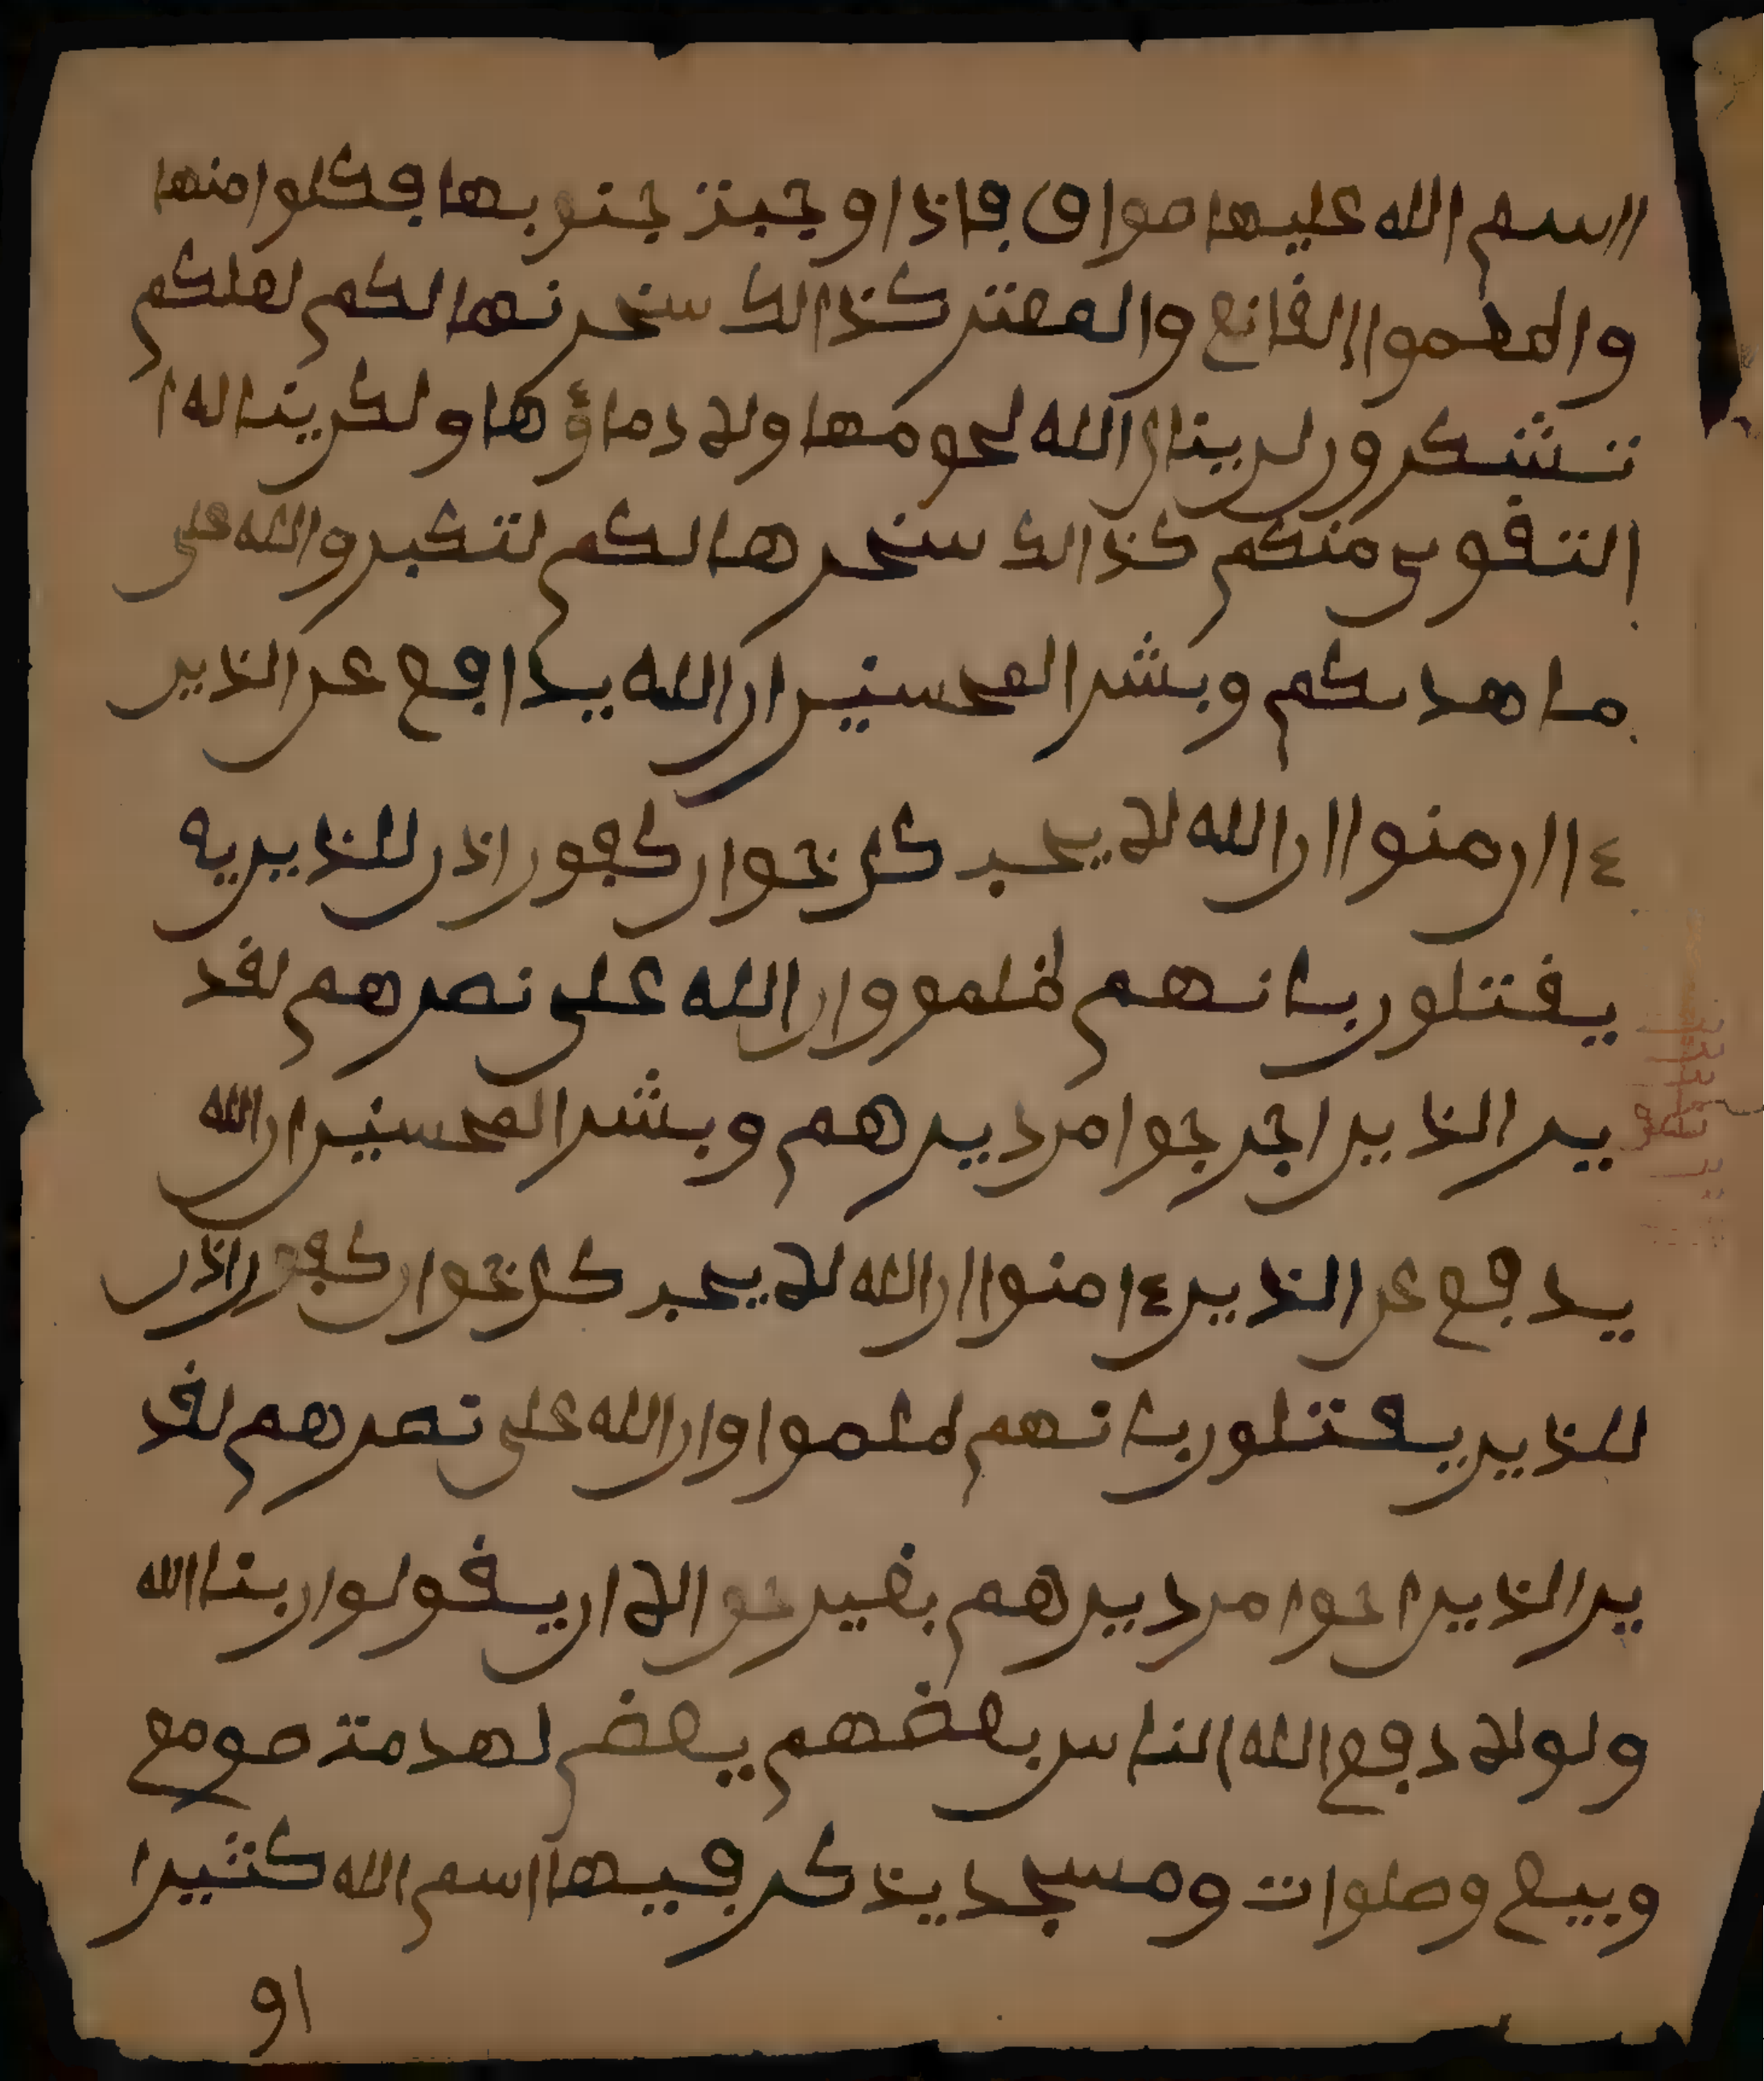 ااسم الله عليها صواف فاذا وجبت جنوبها فكلوا منها
والطعموا القانع والمعتر كذالك سخرنها لكم لعلكم
تشكرون لن ينال الله لحومها ولا دماؤها ولكن يناله ا
التقوى منكم كذالك سخرها لكم لتكبروا الله على
ما هديكم وبشر المحسنين ان الله يدافع عن الذين
ءاامنوا ان الله لا يحب كل خوان كفور اذن للذين يه
يقتلون بانهم ظلموو ان الله على نصرهم لقد
ير الذين اخرجوا من ديرهم وبشر المحسنين ان الله
يدفع عن الذين ءامنوا ان الله لا يحب كل خوان كفور اذن
للذين يقتلون بانهم ظلموا وان الله على نصرهم لقد
ير الذين اخوا من ديرهم بغير حق الا ان يقولوا ربنا الله
ولولا دفع الله الناس بعضهم ببعض لهدمت صومع
وبيع وصلوات ومسجد يذكر فيها اسم الله كثيرا
او